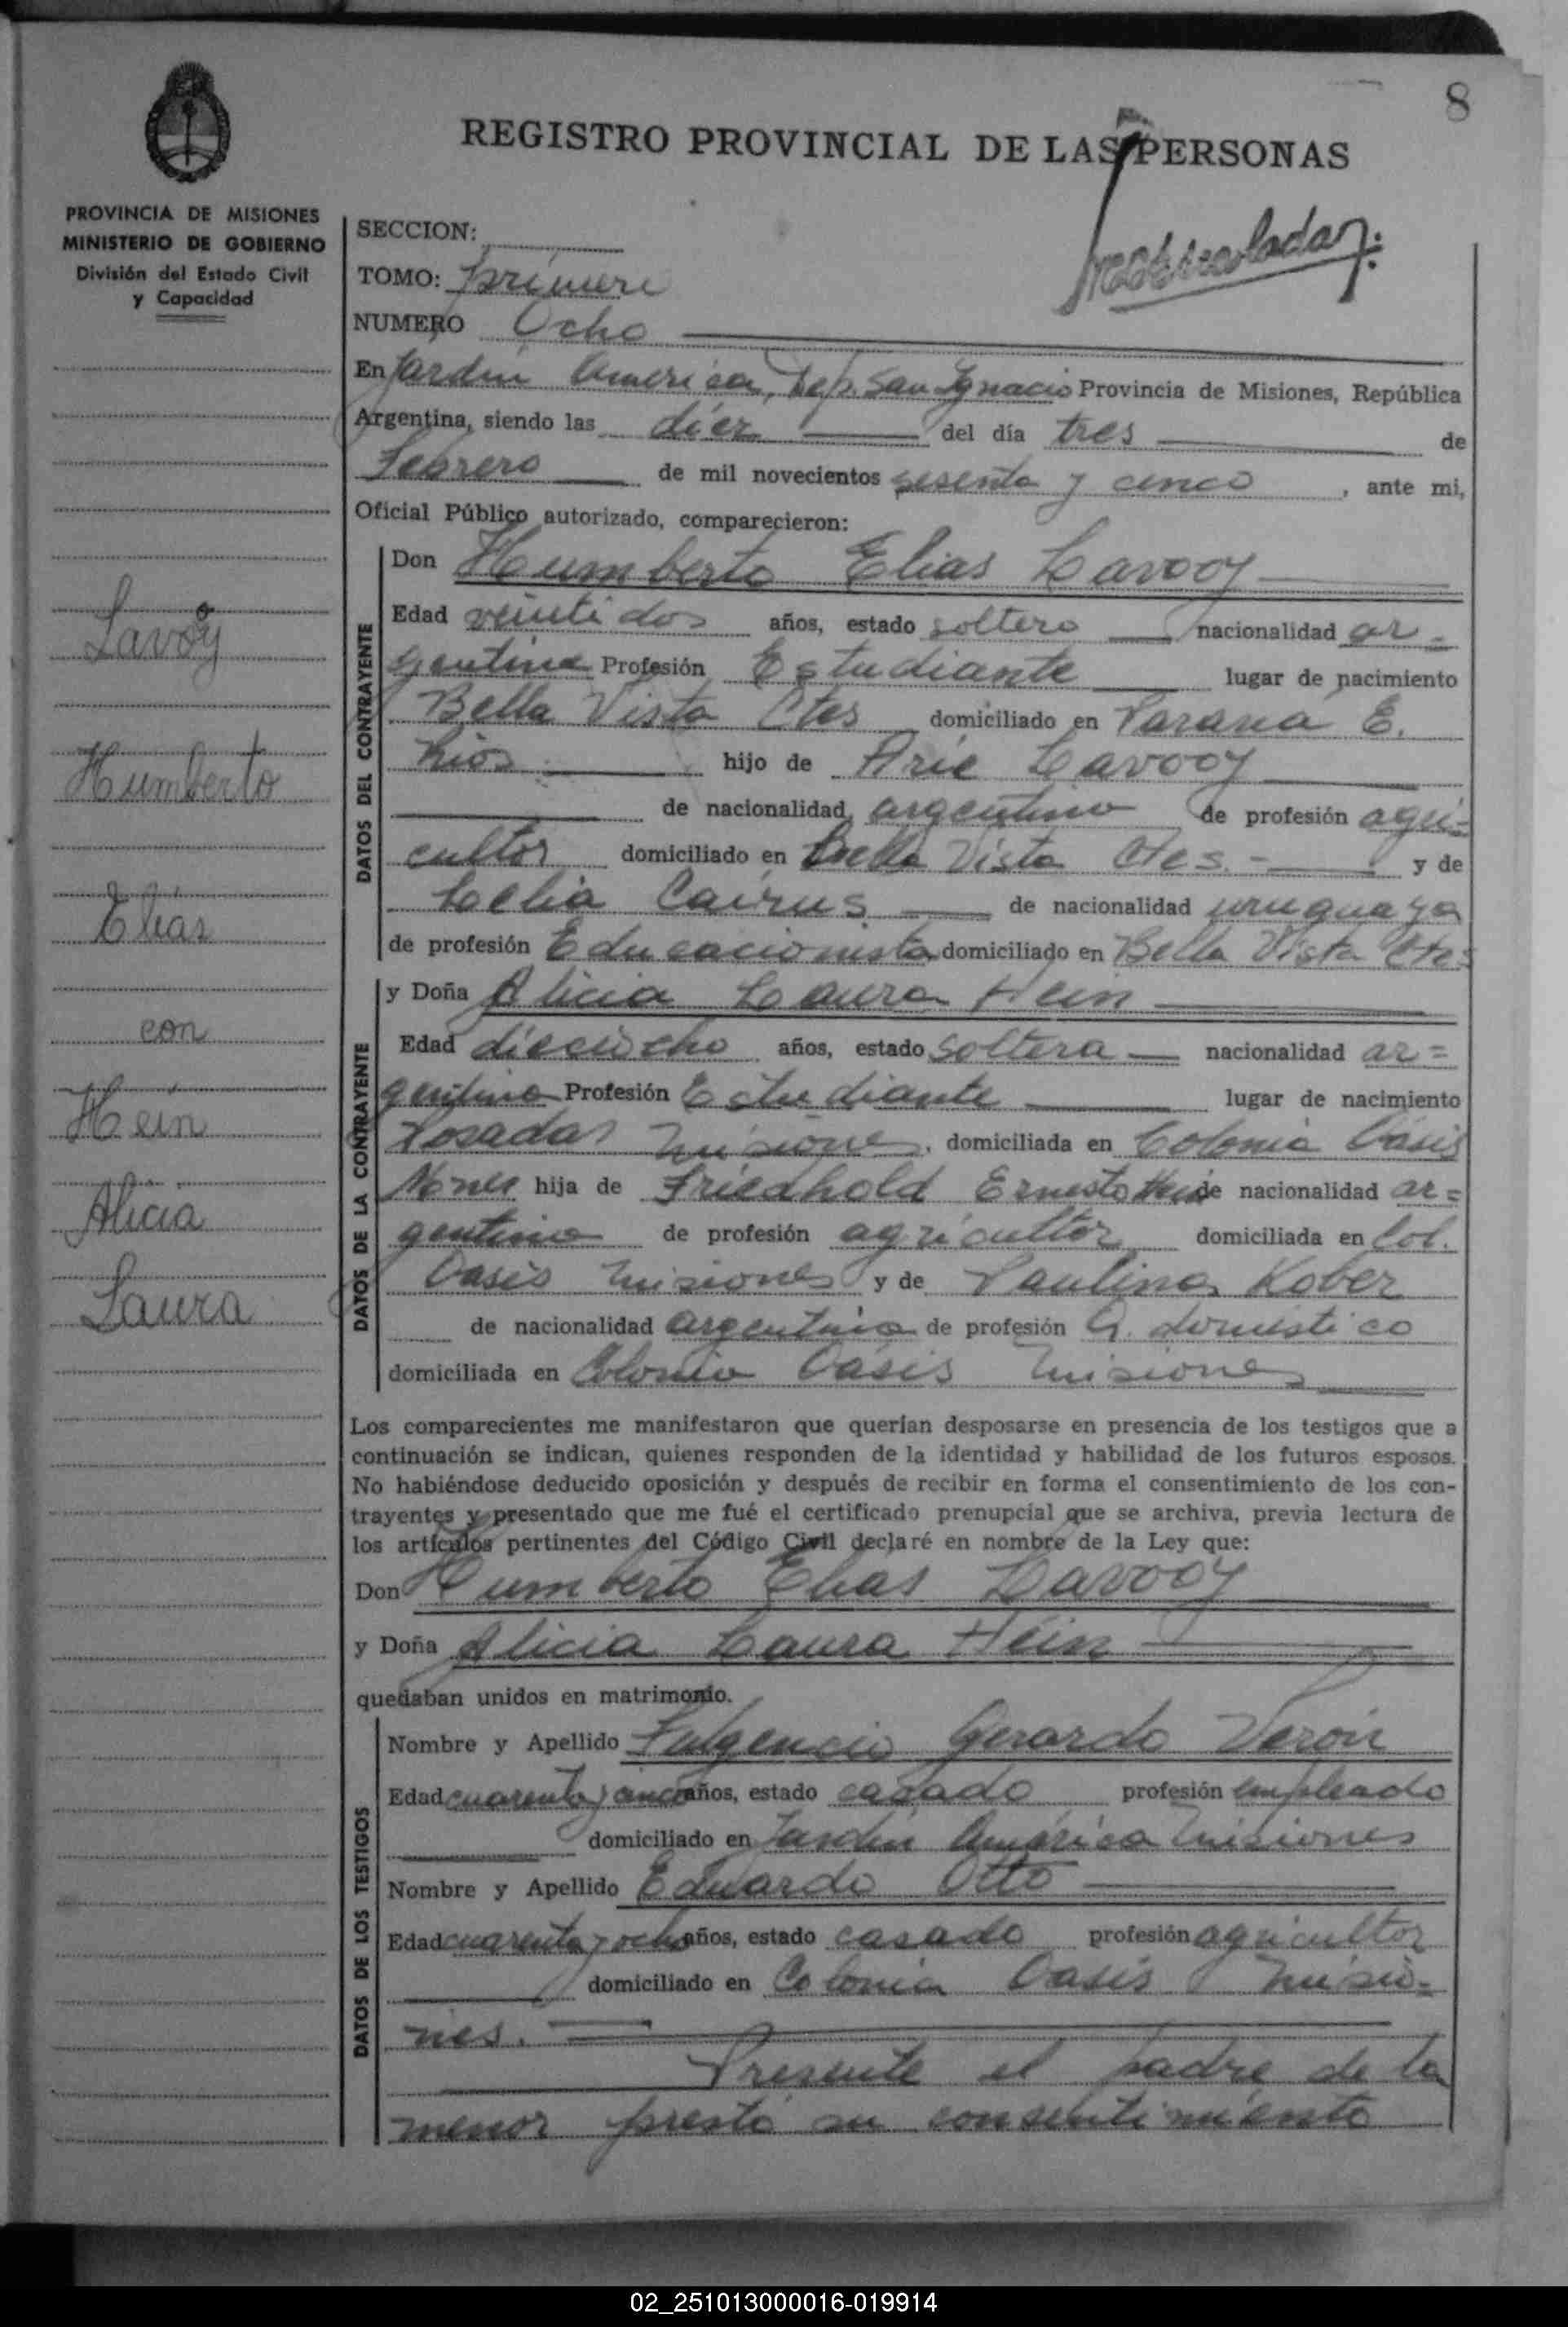 8
REGISTRO PROVINCIAL DE LAS PERSONAS
PROVINCIA DE MISIONES
MINISTERIO DE GOBIERNO
División del Estado Civil
y Capacidad
Lavooy
Humberto
Elias
con
Hein
Alicia
Laura
SECCION:
TOMO: primero
NUMERO Ocho
En Jardin America, Dep. San Ignacio Provincia de Misiones, República
Argentina, siendo las diez del día tres de
Febrero de mil novecientos sesenta y cinco, ante mi,
Oficial Público autorizado, comparecieron:
DATOS DEL CONTRAYENTE
Don Humberto Elias Lavooy
Edad veinti dos años, estado soltero nacionalidad ar=
gentina Profesión Estudiante lugar de nacimiento
Bella Vista Ctes domiciliado en Paraná E.
Rios hijo de Arie Lavooy
de nacionalidad argentino de profesión agri=
cultor domiciliado en Bella Vista Ctes.- y de
Celia Cairus de nacionalidad uruguaya
de profesión Educacionista domiciliado en Bella Vista Ctes
DATOS DE LA CONTRAYENTE
y Doña Alicia Laura Hein
Edad dieciocho años, estado soltera nacionalidad ar=
gentina Profesión Estudiante lugar de nacimiento
Posadas Misiones, domiciliada en Colonia Oasis
hija de Friedhold Ernesto Hein de nacionalidad ar=
gentino de profesión agricultor domiciliada en Col.
Oasis Misiones y de Paulina Kober
de nacionalidad argentina de profesión Q. domestico
domiciliada en Colonia Oasis Misiones
Los comparecientes me manifestaron que querían desposarse en presencia de los testigos que a
continuación se indican, quienes responden de la identidad y habilidad de los futuros esposos.
No habiéndose deducido oposición y después de recibir en forma el consentimiento de los con-
trayentes y presentado que me fué el certificado prenupcial que se archiva, previa lectura de
los artículos pertinentes del Código Civil declaré en nombre de la Ley que:
Don Humberto Elias Lavooy
y Doña Alicia Laura Hein
quedaban unidos en matrimonio.
DATOS DE LOS TESTIGOS
Nombre y Apellido Fulgencio Gerardo Verón
Edad cuarenta y cinco años, estado casado profesión empleado
domiciliado en Jardin América Misiones
Nombre y Apellido Eduardo Otto
Edad cuarenta y ocho años, estado casado profesión agricultor
domiciliado en Colonia Oasis Misio=
nes.
Presente el padre de la
menor prestó su consentimiento
02_251013000016-019914